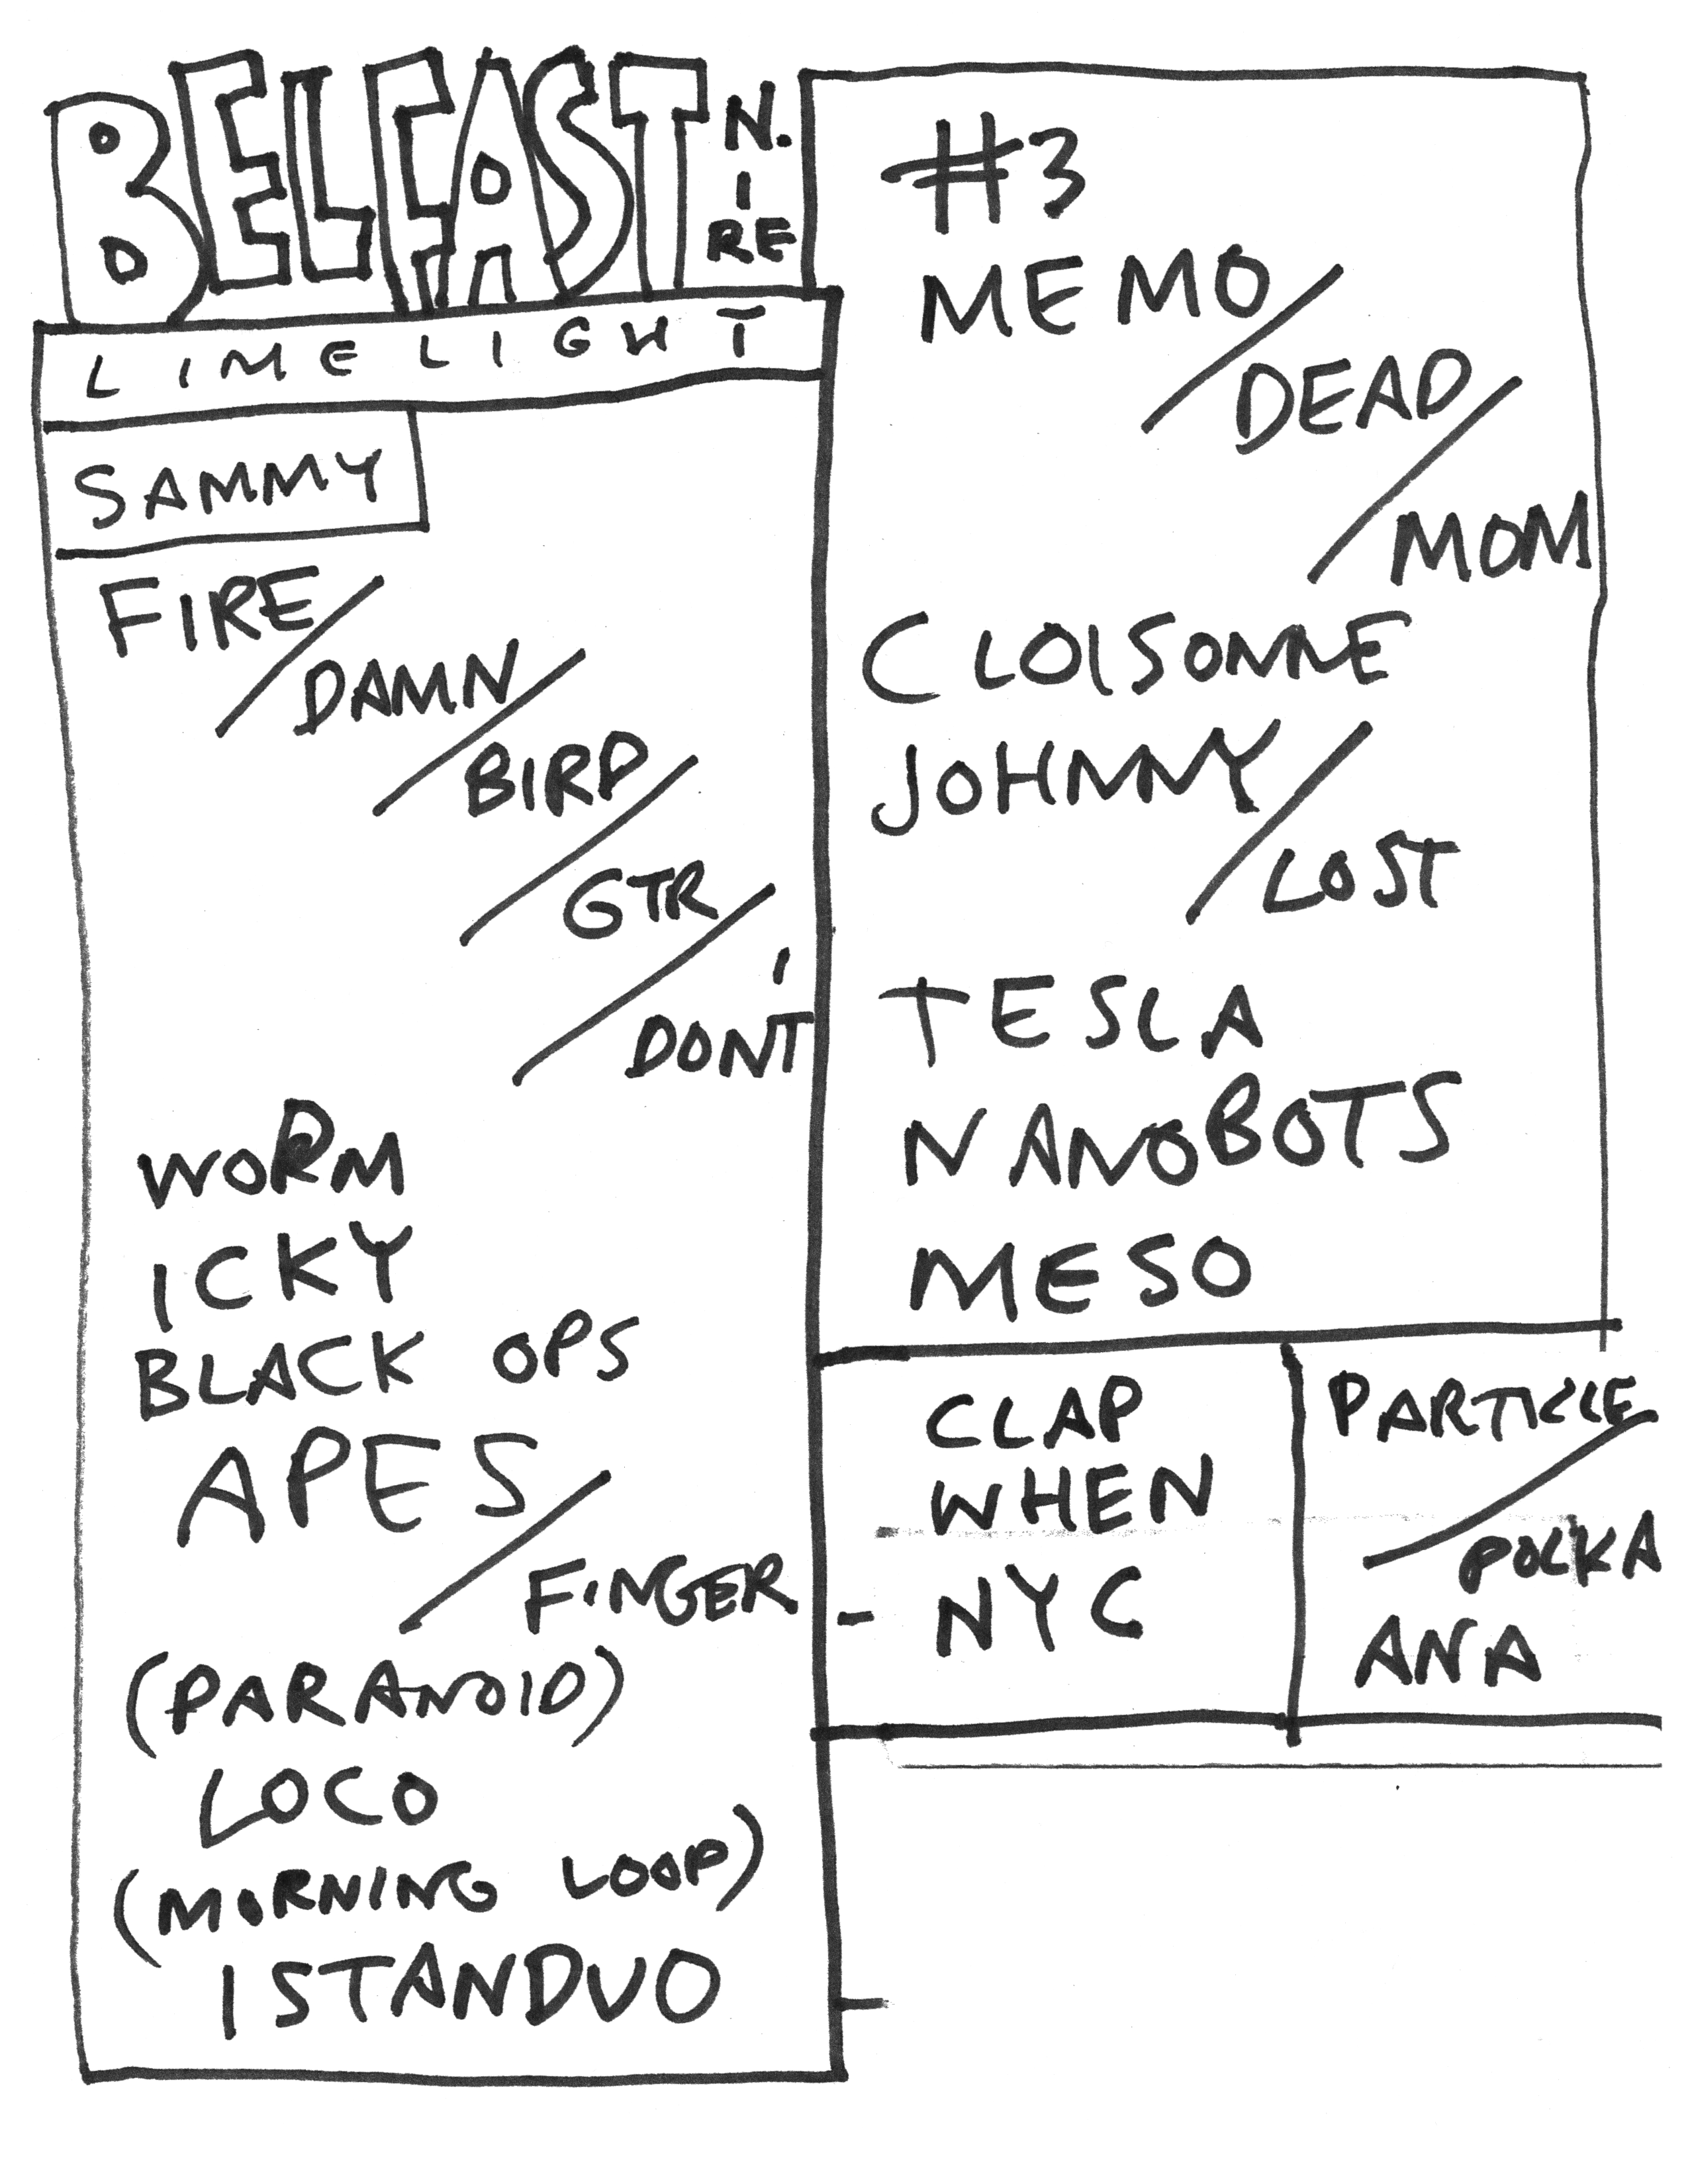 BELFAST
N.
I
RE
LIMELIGHT
SAMMY
FIRE/
DAMN/
BIRD/
GTR/
DON'T
WORM
ICKY
BLACK OPS
APES/
FINGER
(PARANOID)
LOCO
(MORNING LOOP)
ISTANDUO
#3
MEMO/
DEAD/
MOM
CLOISONNE
JOHNNY/
LOST
TESLA
NANOBOTS
MESO
CLAP
WHEN
- NYC
PARTICLE/
POLKA
ANA